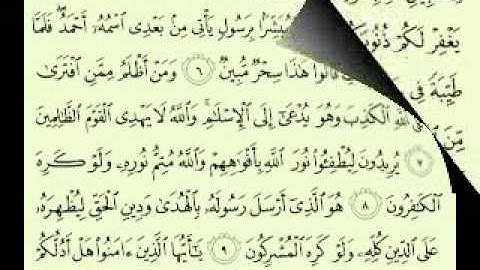 يَغْفِرْ لَكُمْ مُبَشِّرًۢا بِرَسُولٍ يَأْتِى مِنۢ بَعْدِى ٱسْمُهُۥٓ أَحْمَدُ ۖ فَلَمَّا
طَيِّبَةً فِى قَالُوا۟ هَٰذَا سِحْرٌ مُّبِينٌ ٦ وَمَنْ أَظْلَمُ مِمَّنِ ٱفْتَرَىٰ
مِّنَ ٱللَّهِ ٱلْكَذِبَ وَهُوَ يُدْعَىٰٓ إِلَى ٱلْإِسْلَٰمِ ۚ وَٱللَّهُ لَا يَهْدِى ٱلْقَوْمَ ٱلظَّٰلِمِينَ
٧ يُرِيدُونَ لِيُطْفِـُٔوا۟ نُورَ ٱللَّهِ بِأَفْوَٰهِهِمْ وَٱللَّهُ مُتِمُّ نُورِهِۦ وَلَوْ كَرِهَ
ٱلْكَٰفِرُونَ ٨ هُوَ ٱلَّذِىٓ أَرْسَلَ رَسُولَهُۥ بِٱلْهُدَىٰ وَدِينِ ٱلْحَقِّ لِيُظْهِرَهُۥ
عَلَى ٱلدِّينِ كُلِّهِۦ وَلَوْ كَرِهَ ٱلْمُشْرِكُونَ ٩ يَٰٓأَيُّهَا ٱلَّذِينَ ءَامَنُوا۟ هَلْ أَدُلُّكُمْ